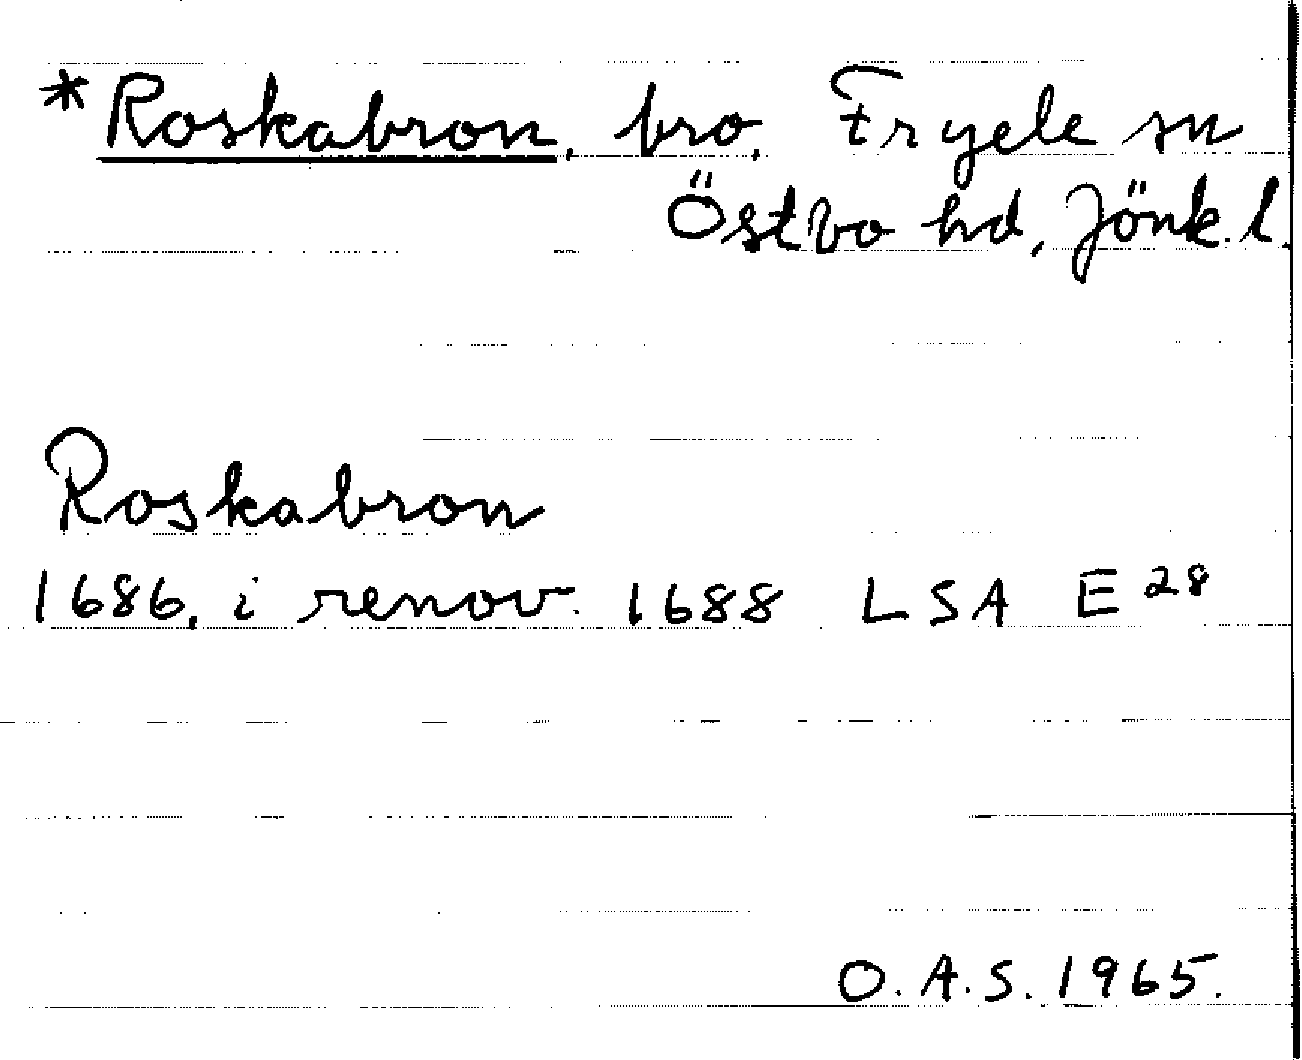 *Roskabron, bro, Fryele sn
Östbo hd, Jönk. l.
Roskabron
1686, i renov. 1688 LSA E 28
O.A.S. 1965.